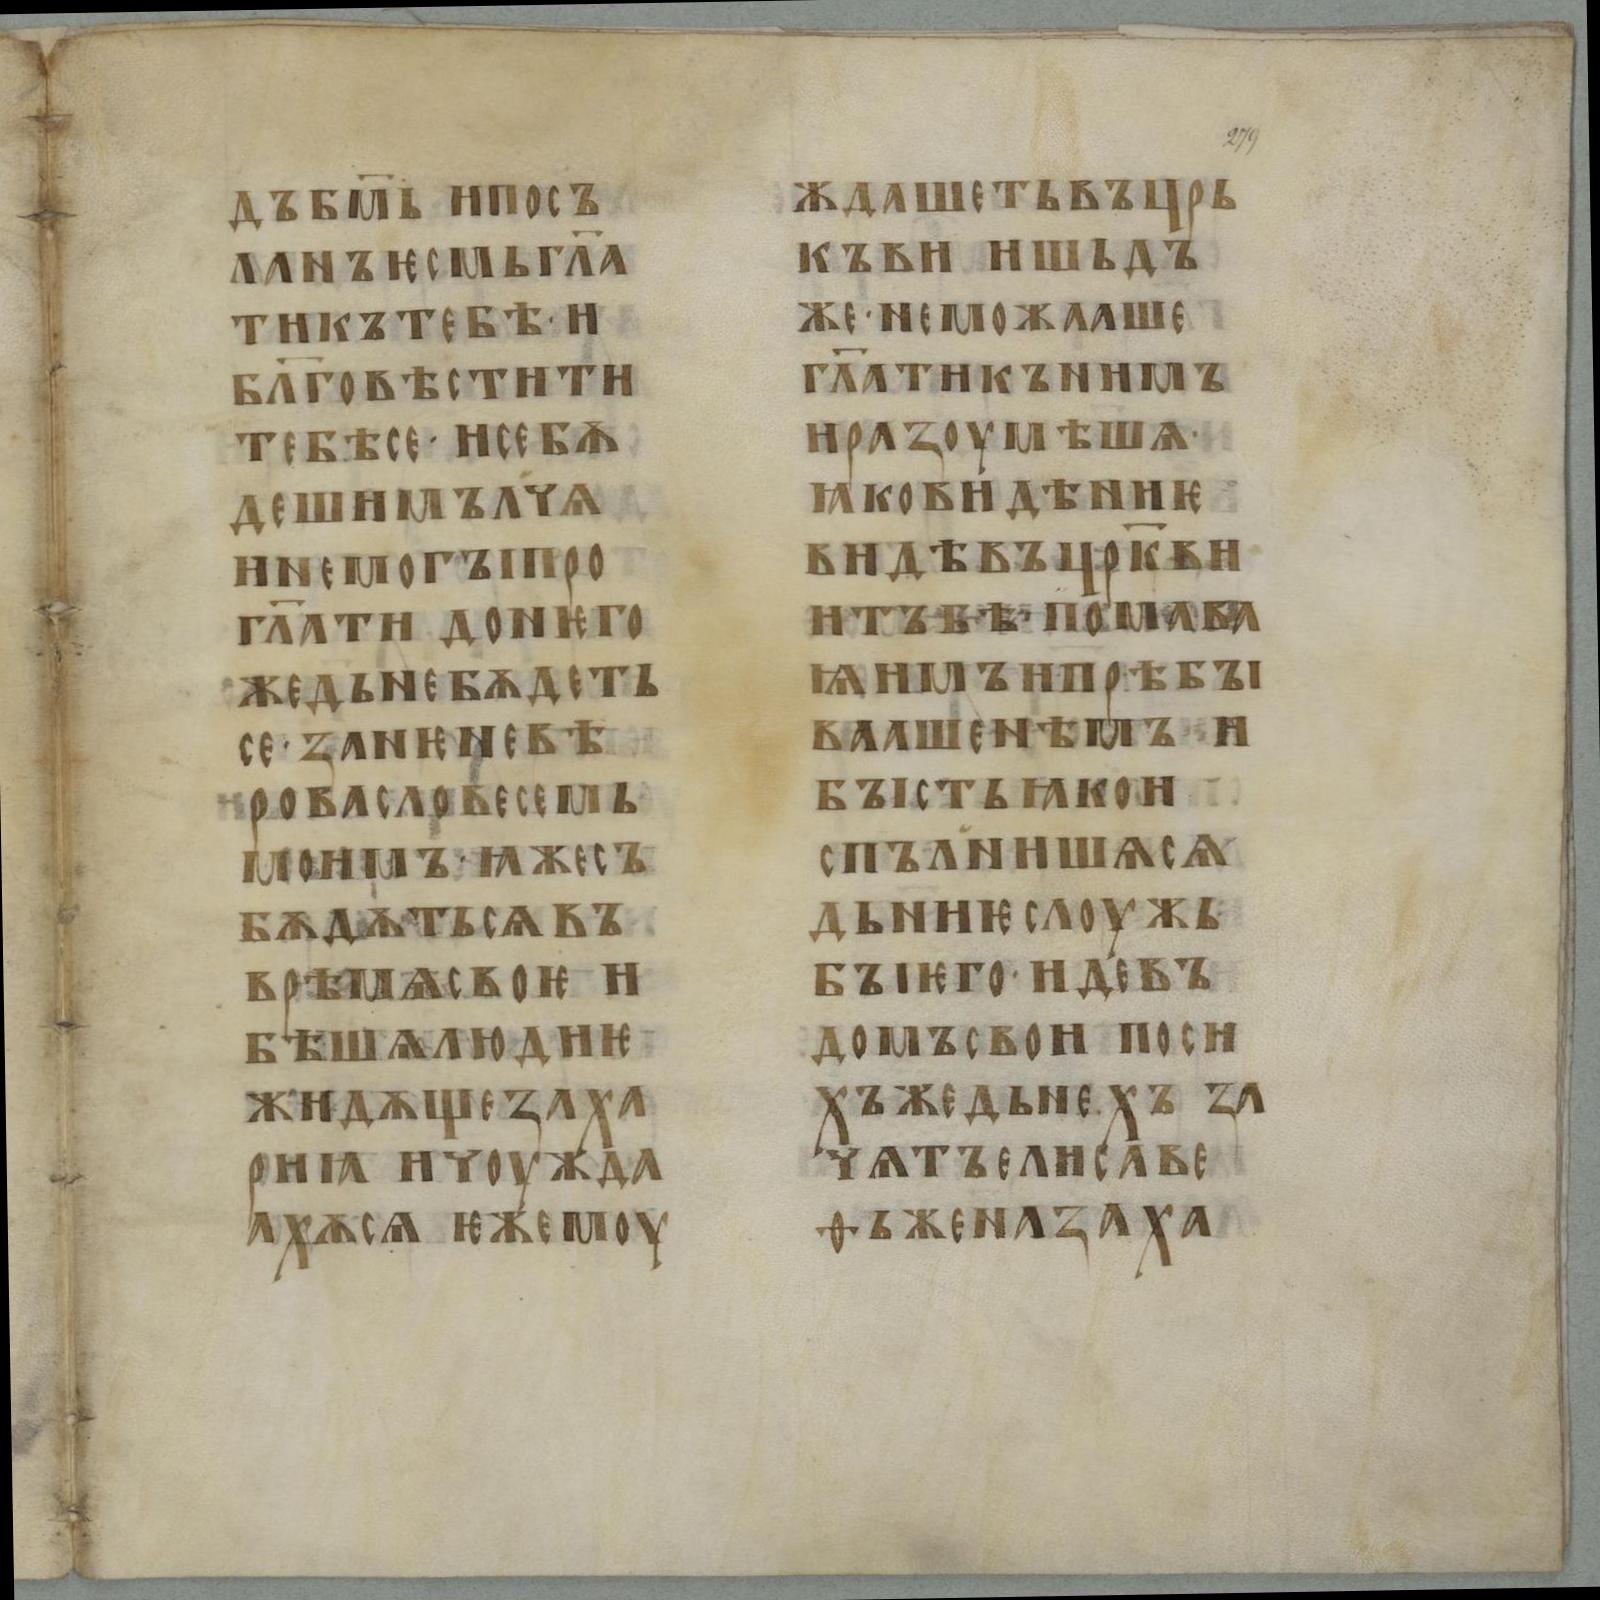 279
дъбм҃ь ипосъ
ланъѥсмьгл҃а
тикътебѣ· и
бл҃говѣстити
тебѣсе· исебѫ
дешимълчѧ
инемогꙑпро
гл҃ати донѥго
жедьнебѫдеть
се· занѥневѣ
ровасловесемь
моимъ· ꙗжесъ
бѫдѫтьсѧвъ
врѣмѧсвоѥ и
бѣшѧлюдиѥ
жидѫщезаха
риꙗ ичоужда
ахѫсѧ ѥжемоу
ждашетьвъцрь
къви ишьдъ
же· неможааше
гл҃атикънимъ
иразоумѣшѧ·
ꙗковидѣниѥ
видѣвъцрк҃ви
итъбѣ· помава
ѩимъипрѣбꙑ
вaашенѣмъ и
бꙑстьꙗкои
спълнишѧсѧ
дьниѥслоужь
бꙑѥго· идевъ
домъсвои поси
хъжедьнехъ за
чѧтъелисаве
ѳьженазаха